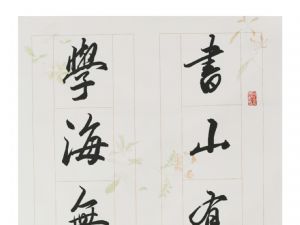 書山有
學海無